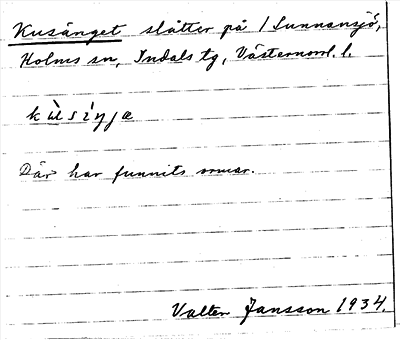 Kusänget slåtter på 1 Sunnansjö,
Holms sn, Indals tg, Västernorrl. l.
Där har funnits ormar.
Valter Jansson 1934.